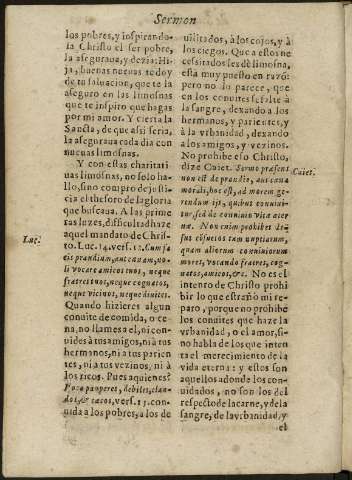 Sermon
los pobres, y inspirando-
la Christo el ser pobre,
la asegurava, y dezia: Hi
ja, buenas nuevas te doy
de tu saluacion, que te la
aseguro en las limosnas
que te inspiro que hagas
por mi amor. Y cierta la
Sancta, de que asi seria,
la aseguraua cada dia con
nueuas limosnas.
Y con estas charitati
uas limosnas, no solo ha-
llo, sino compro de justi-
cia el thesoro de la gloria
que buscaua. A las prime
ras luzes, dificultad haze
aquel mandato de Chris-
to. Luc. 14. vers. 12. Cum fa
cis prandium, aut cœnam, no-
li vocare amicos tuos, neque
fratres tuos, neque cognatos,
neque vicinos, neque diuites.
Quando hizieres algun
conuite de comida, o ce-
na, no llames a el, ni con-
uides à tus amigos, ni à tus
hermanos, ni a tus parien
tes, ni a tus vezinos, ni à
los ricos. Pues a quienes?
Voca pauperes, debiles, clau-
dos, & cæcos, vers. 13. con-
uida a los pobres, a los de
Luc.
uilitados, à los cojos, y à
los ciegos. Que a estos ne
cesitados les dè limosna,
està muy puesto en razõ:
pero no lo parece, que
en los conuites se falte à
la sangre, dexando a los
hermanos, y parientes, y
à la vrbanidad, dexando
à los amigos, y vezinos.
No prohibe eso Christo,
dize Caiet. Sermo præsens
non est de prandio, aut cœna
mordis, hoc est, ad morem ge-
rendum ijs, quibus conuiui-
tur, sed de conuiuio vitæ æter
næ. Non enim prohibet Ie-
sus consuetos tam nuptiarum,
quam aliorum conuiuiorum
mores, vocando fratres, cog-
natos, amicos, &c. No es el
intento de Christo prohi
bir lo que estraño mi re-
paro, porque no prohibe
los conuites que haze la
vrbanidad, o el amor, si-
no habla de los que inten
ta el merecimiento de la
vida eterna: y estos son
aquellos adonde los con-
uidados, no son los del
respecto de la carne, y de la
sangre, de la vrbanidad, y
el
Caiet.